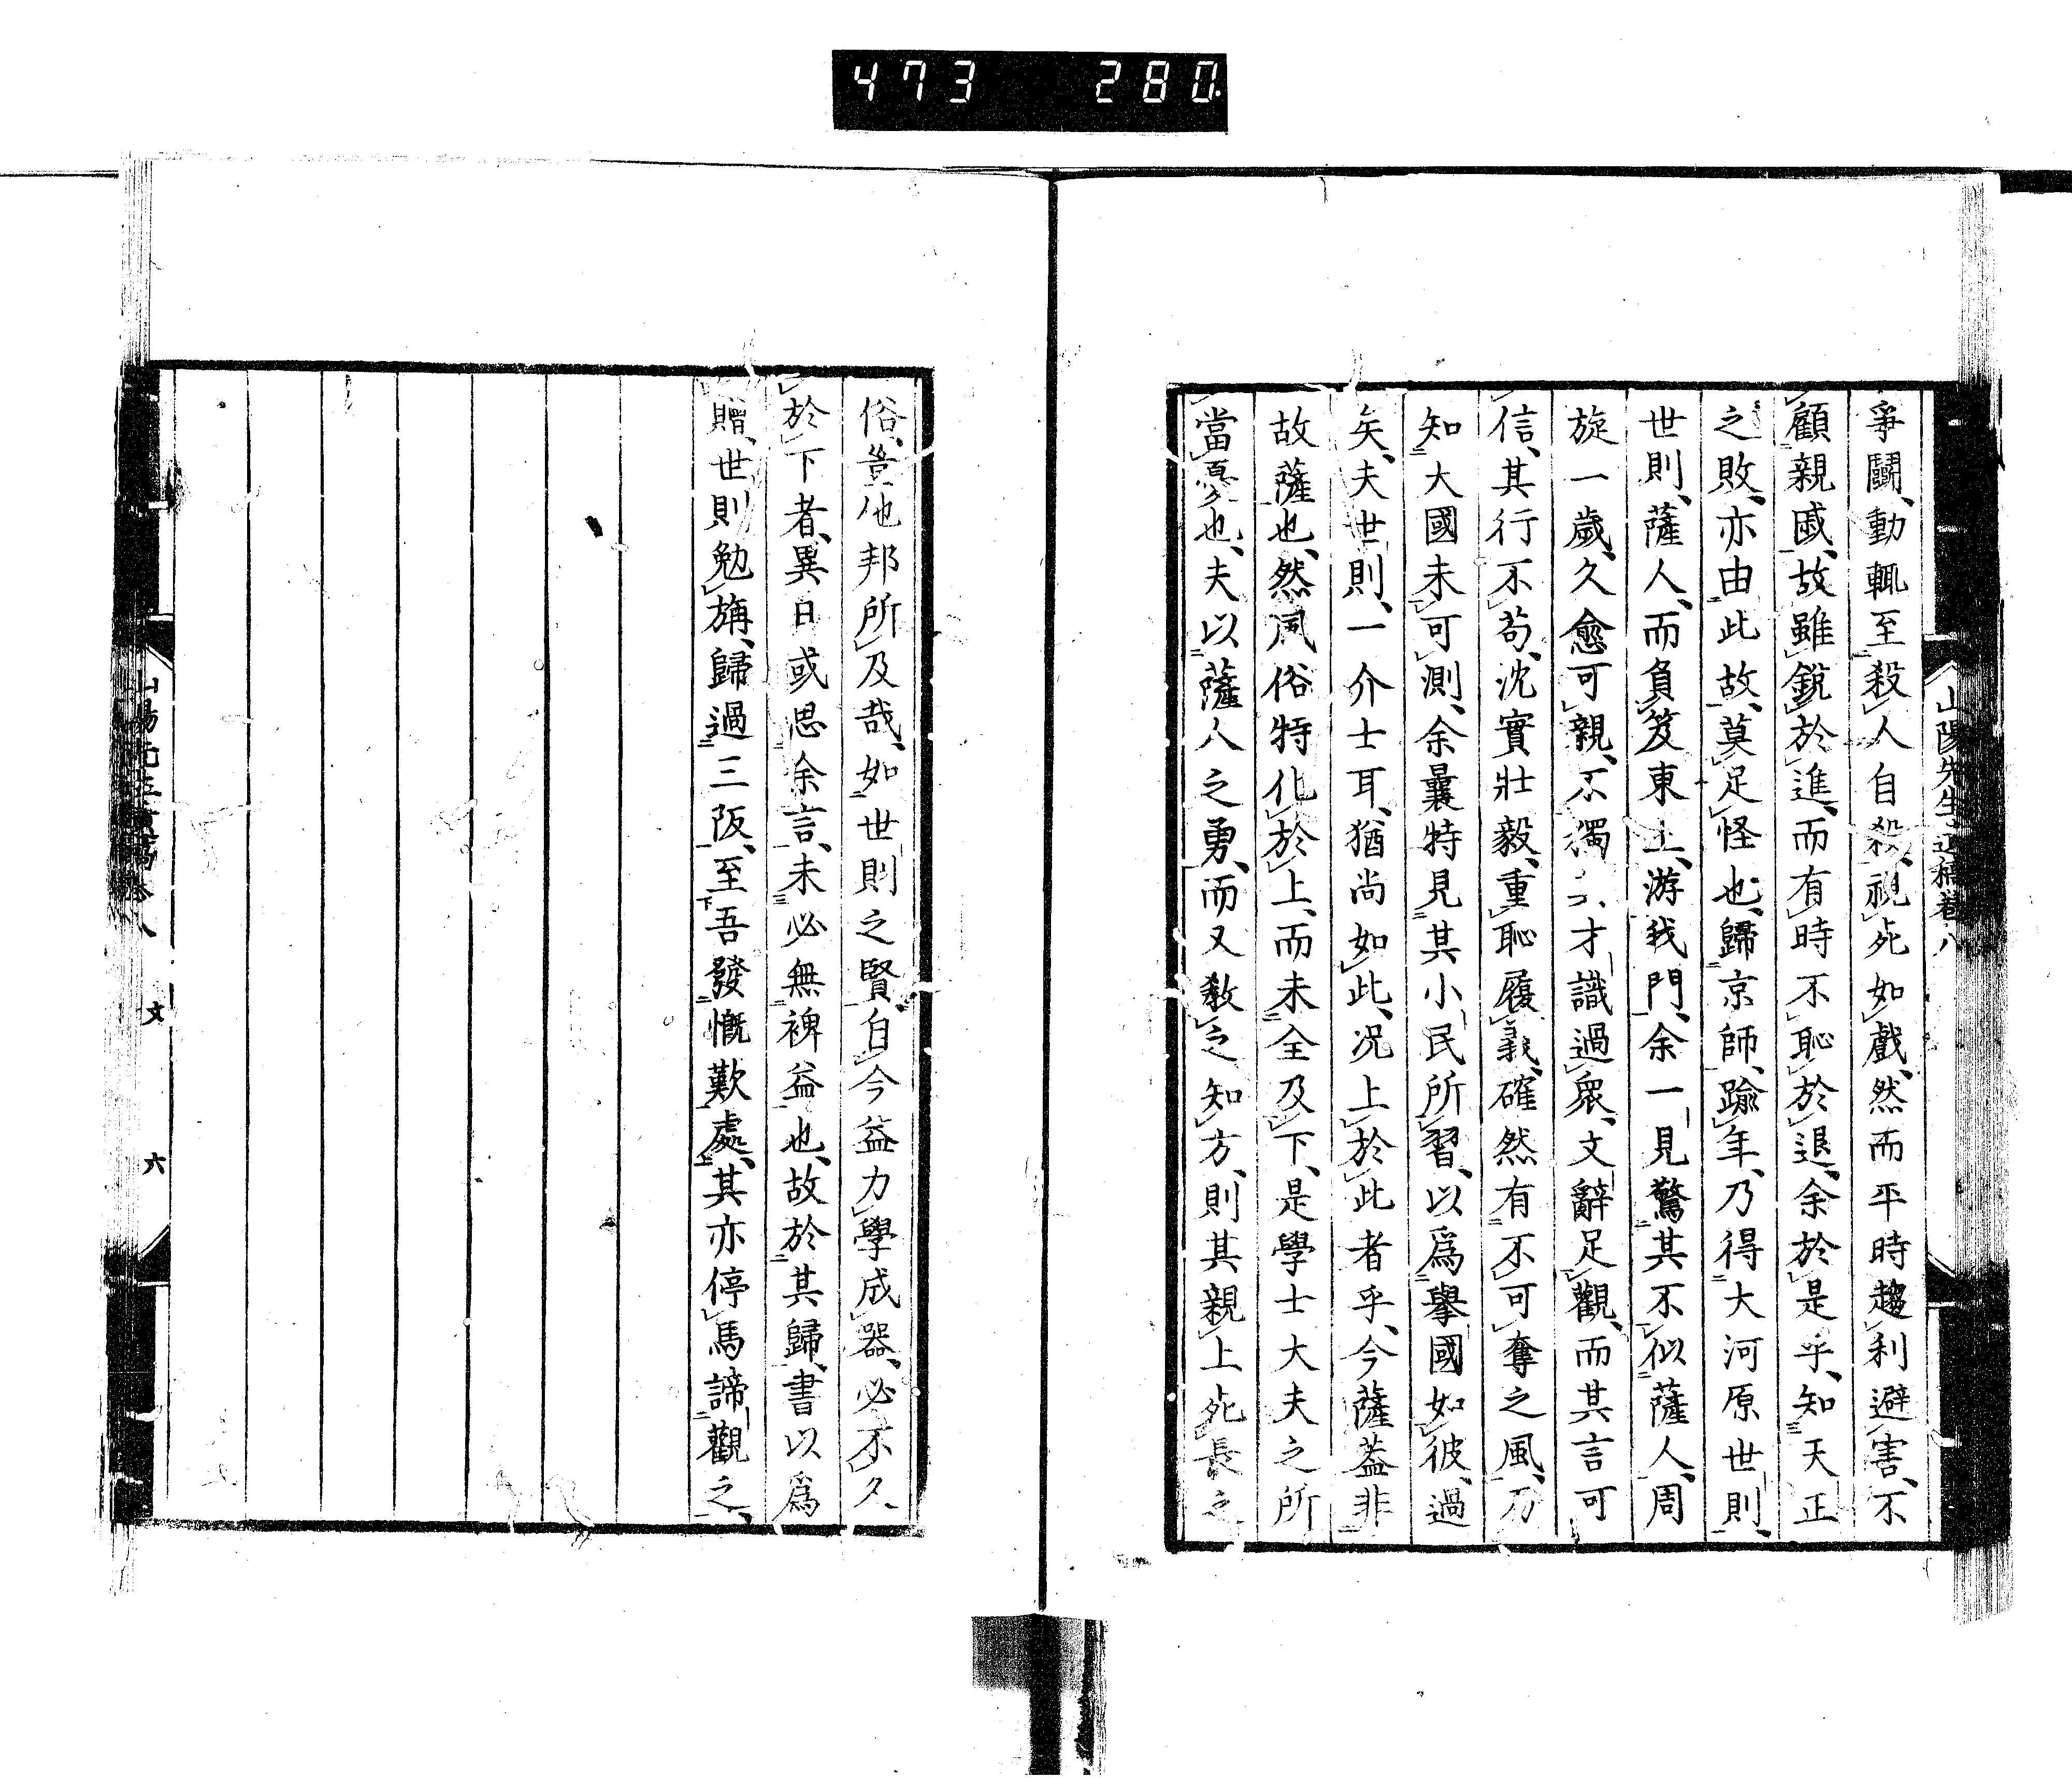 473 280
山陽先生遺稿卷八
爭鬪、動輒至殺人自殺、視死如戲、然而平時趨利避害、不
顧親戚、故雖銳於進、而有時不恥於退、余於是乎、知天正
之敗、亦由此故、莫足怪也、歸京師、踰年、乃得大河原世則、
世則、薩人、而負笈東上、游我門、余一見驚其不似薩人、周
旋一歲、久愈可親、不獨才識過衆、文辭足觀、而其言可
信、其行不苟、沈實壯毅、重恥履義、確然有不可奪之風、乃
知大國未可測、余曩特見其小民所習、以爲擧國如彼、過
矣、夫世則、一介士耳、猶尚如此、況上於此者乎、今薩蓋非
故薩也、然風俗特化於上、而未全及下、是學士大夫之所
當憂也、夫以薩人之勇、而又敎之知方、則其親上死長之
俗、豈他邦所及哉、如世則之賢、自今益力學成器、必不久
於下者、異日或思余言、未必無裨益也、故於其歸、書以爲
贈、世則勉旃、歸過三阪、至吾發慨歎處、其亦停馬諦觀之、
山陽先生遺稿卷八 文 六